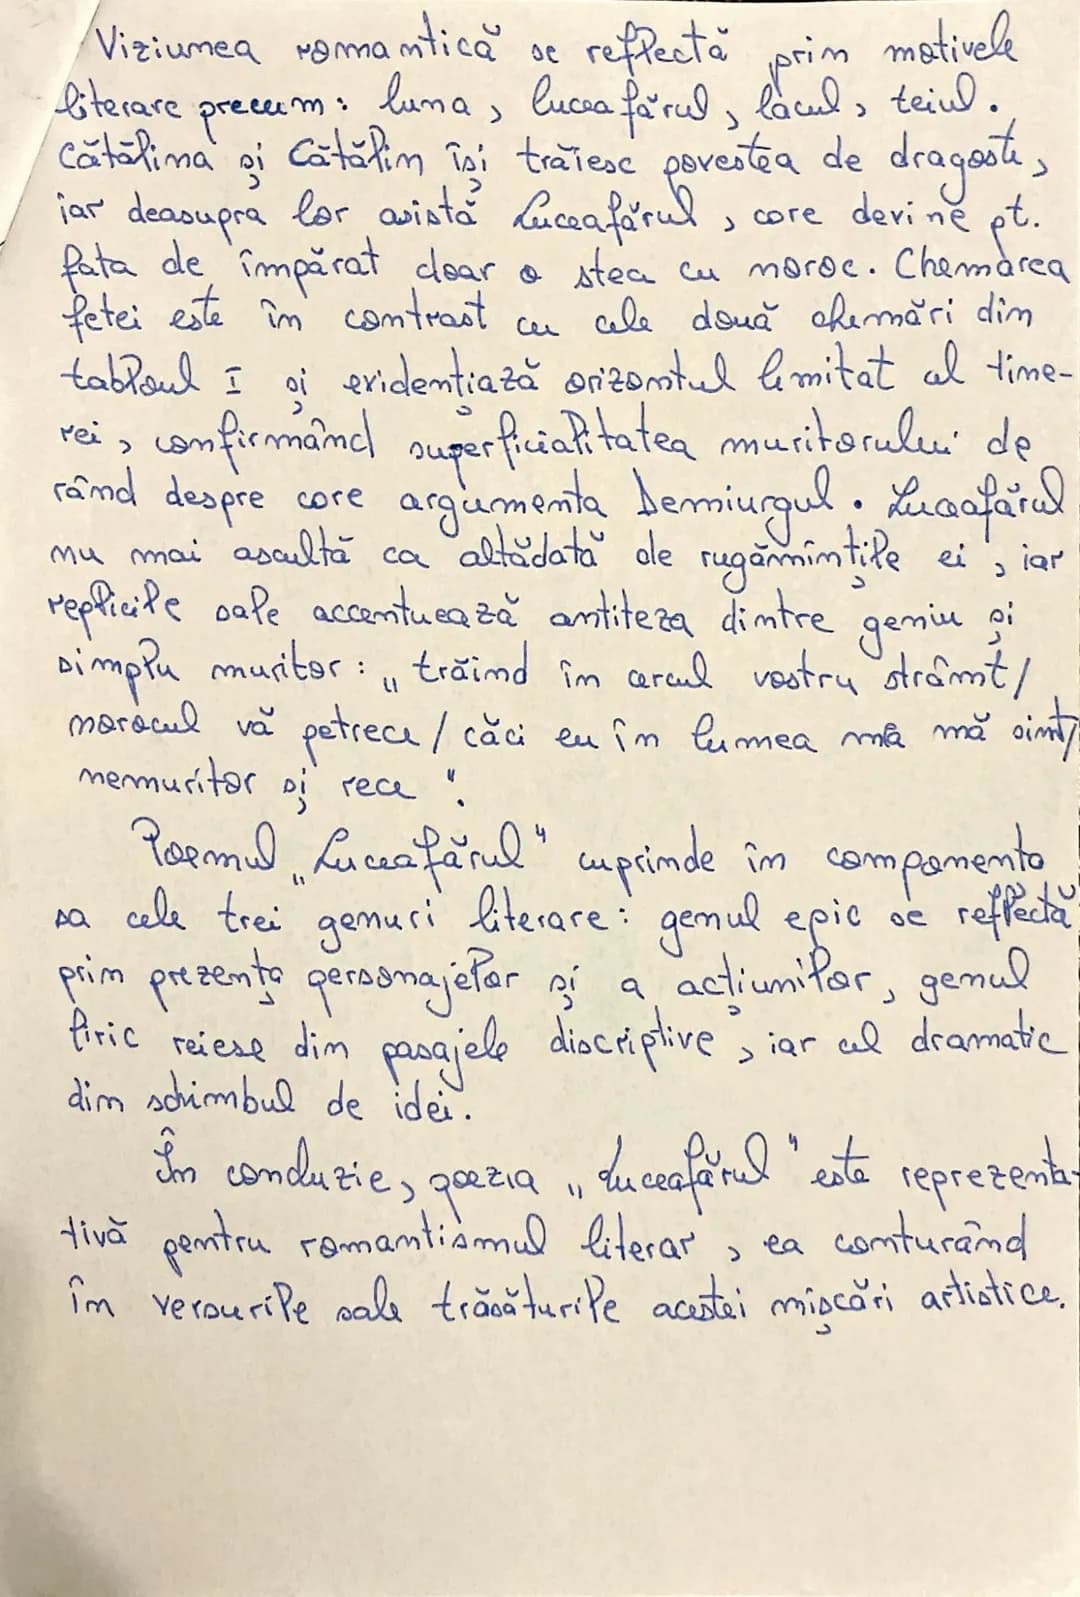 Viziunea romantică se reflectă prin motivele
literare precum: luna, luceafărul, lacul, teiul.
Cătălina și Cătălin își trăiesc povestea de dragoste,
iar deasupra lor asistă Luceafărul, care devine pt.
fata de împărat doar o stea cu noroc. Chemarea
fetei este în contrast cu cele două chemări din
tabloul I și evidențiază orizontul limitat al tine-
rei, confirmând superficialitatea muritorului de
rând despre care argumenta Demiurgul. Luceafărul
nu mai ascultă ca altădată de rugămințile ei, iar
replicile sale accentuează antiteza dintre geniu și
simplu muritor: „trăind în cercul vostru strâmt/
norocul vă petrece/ căci eu în lumea mea mă simt/
nemuritor și rece".
Poemul „Luceafărul" cuprinde în componența
sa cele trei genuri literare: genul epic se reflectă
prin prezența personajelor și a acțiunilor, genul
liric reiese din pasajele discriptive, iar cel dramatic
din schimbul de idei.
În concluzie, poezia „Luceafărul" este reprezenta-
tivă pentru romantismul literar, ea conturând
în versurile sale trăsăturile acestei mișcări artistice.